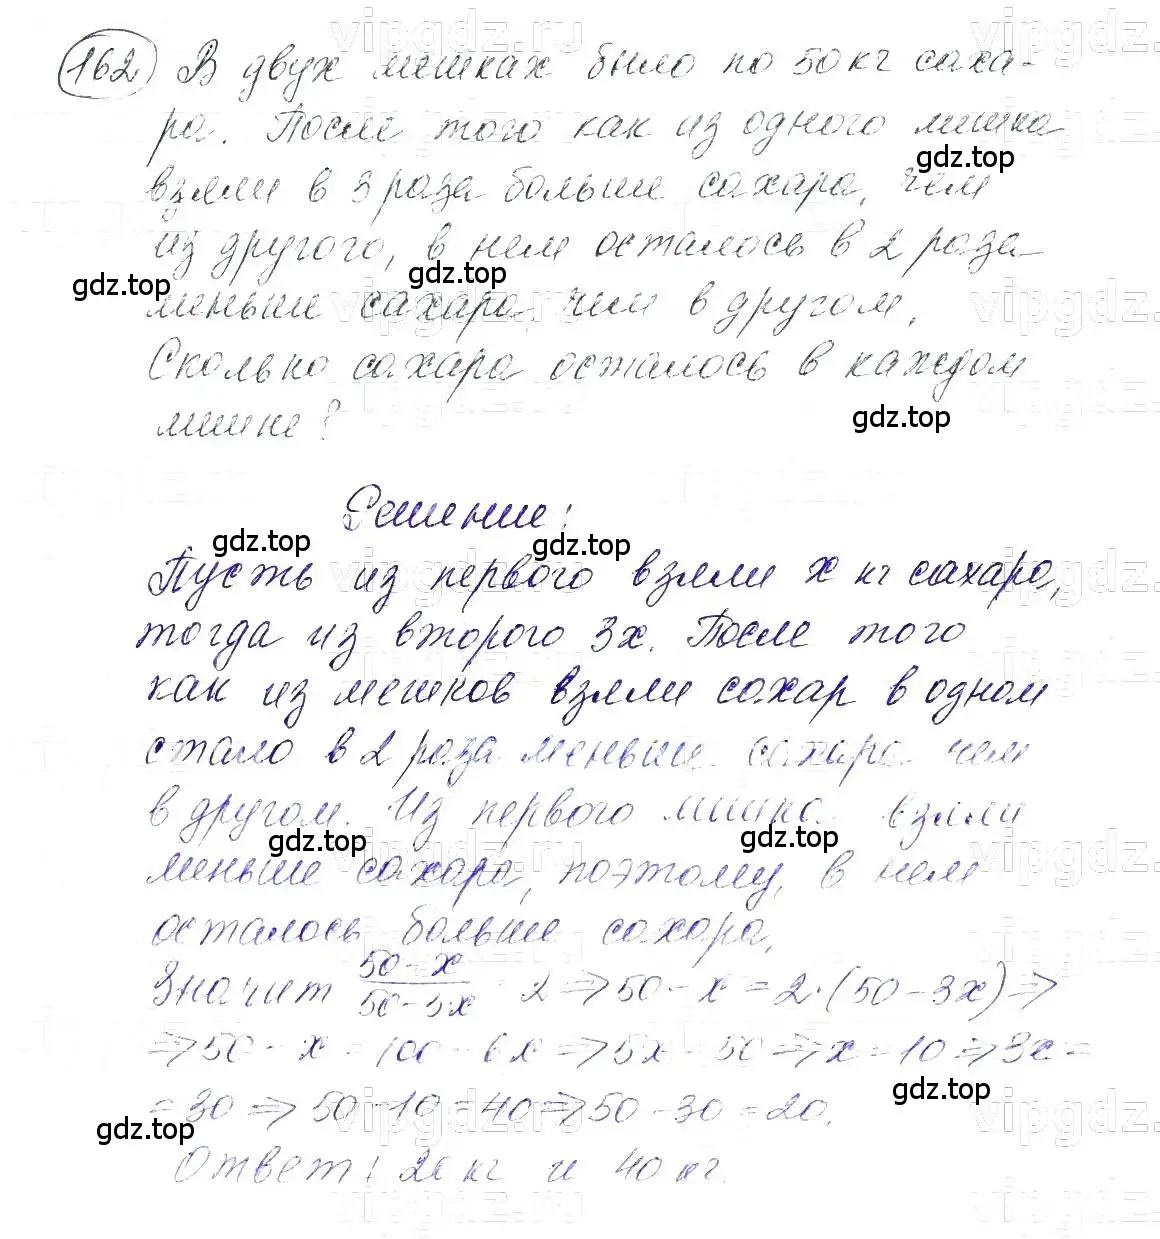 162 В двух мешках было по 50 кг саха-
ра. После того как из одного мешка
взяли в 3 раза больше сахара, чем
из другого, в нем осталось в 2 раза
меньше сахара, чем в другом.
Сколько сахара осталось в каждом
мешке?
Решение:
Пусть из первого взяли x кг сахара,
тогда из второго 3x. После того
как из мешков взяли сахар в одном
стало в 2 раза меньше сахара чем
в другом. Из первого мешка взяли
меньше сахара, поэтому, в нем
осталось больше сахара,
Значит (50-x)/(50-3x) = 2 => 50-x = 2·(50-3x) =>
=> 50-x = 100-6x => 5x = 50 => x = 10 => 3x =
= 30 => 50-10 = 40 => 50-30 = 20.
Ответ: 20 кг и 40 кг.
gdz.top
gdz.top
gdz.top
gdz.top
gdz.top
gdz.top
gdz.top
gdz.top
gdz.top
gdz.top
vipgdz.ru